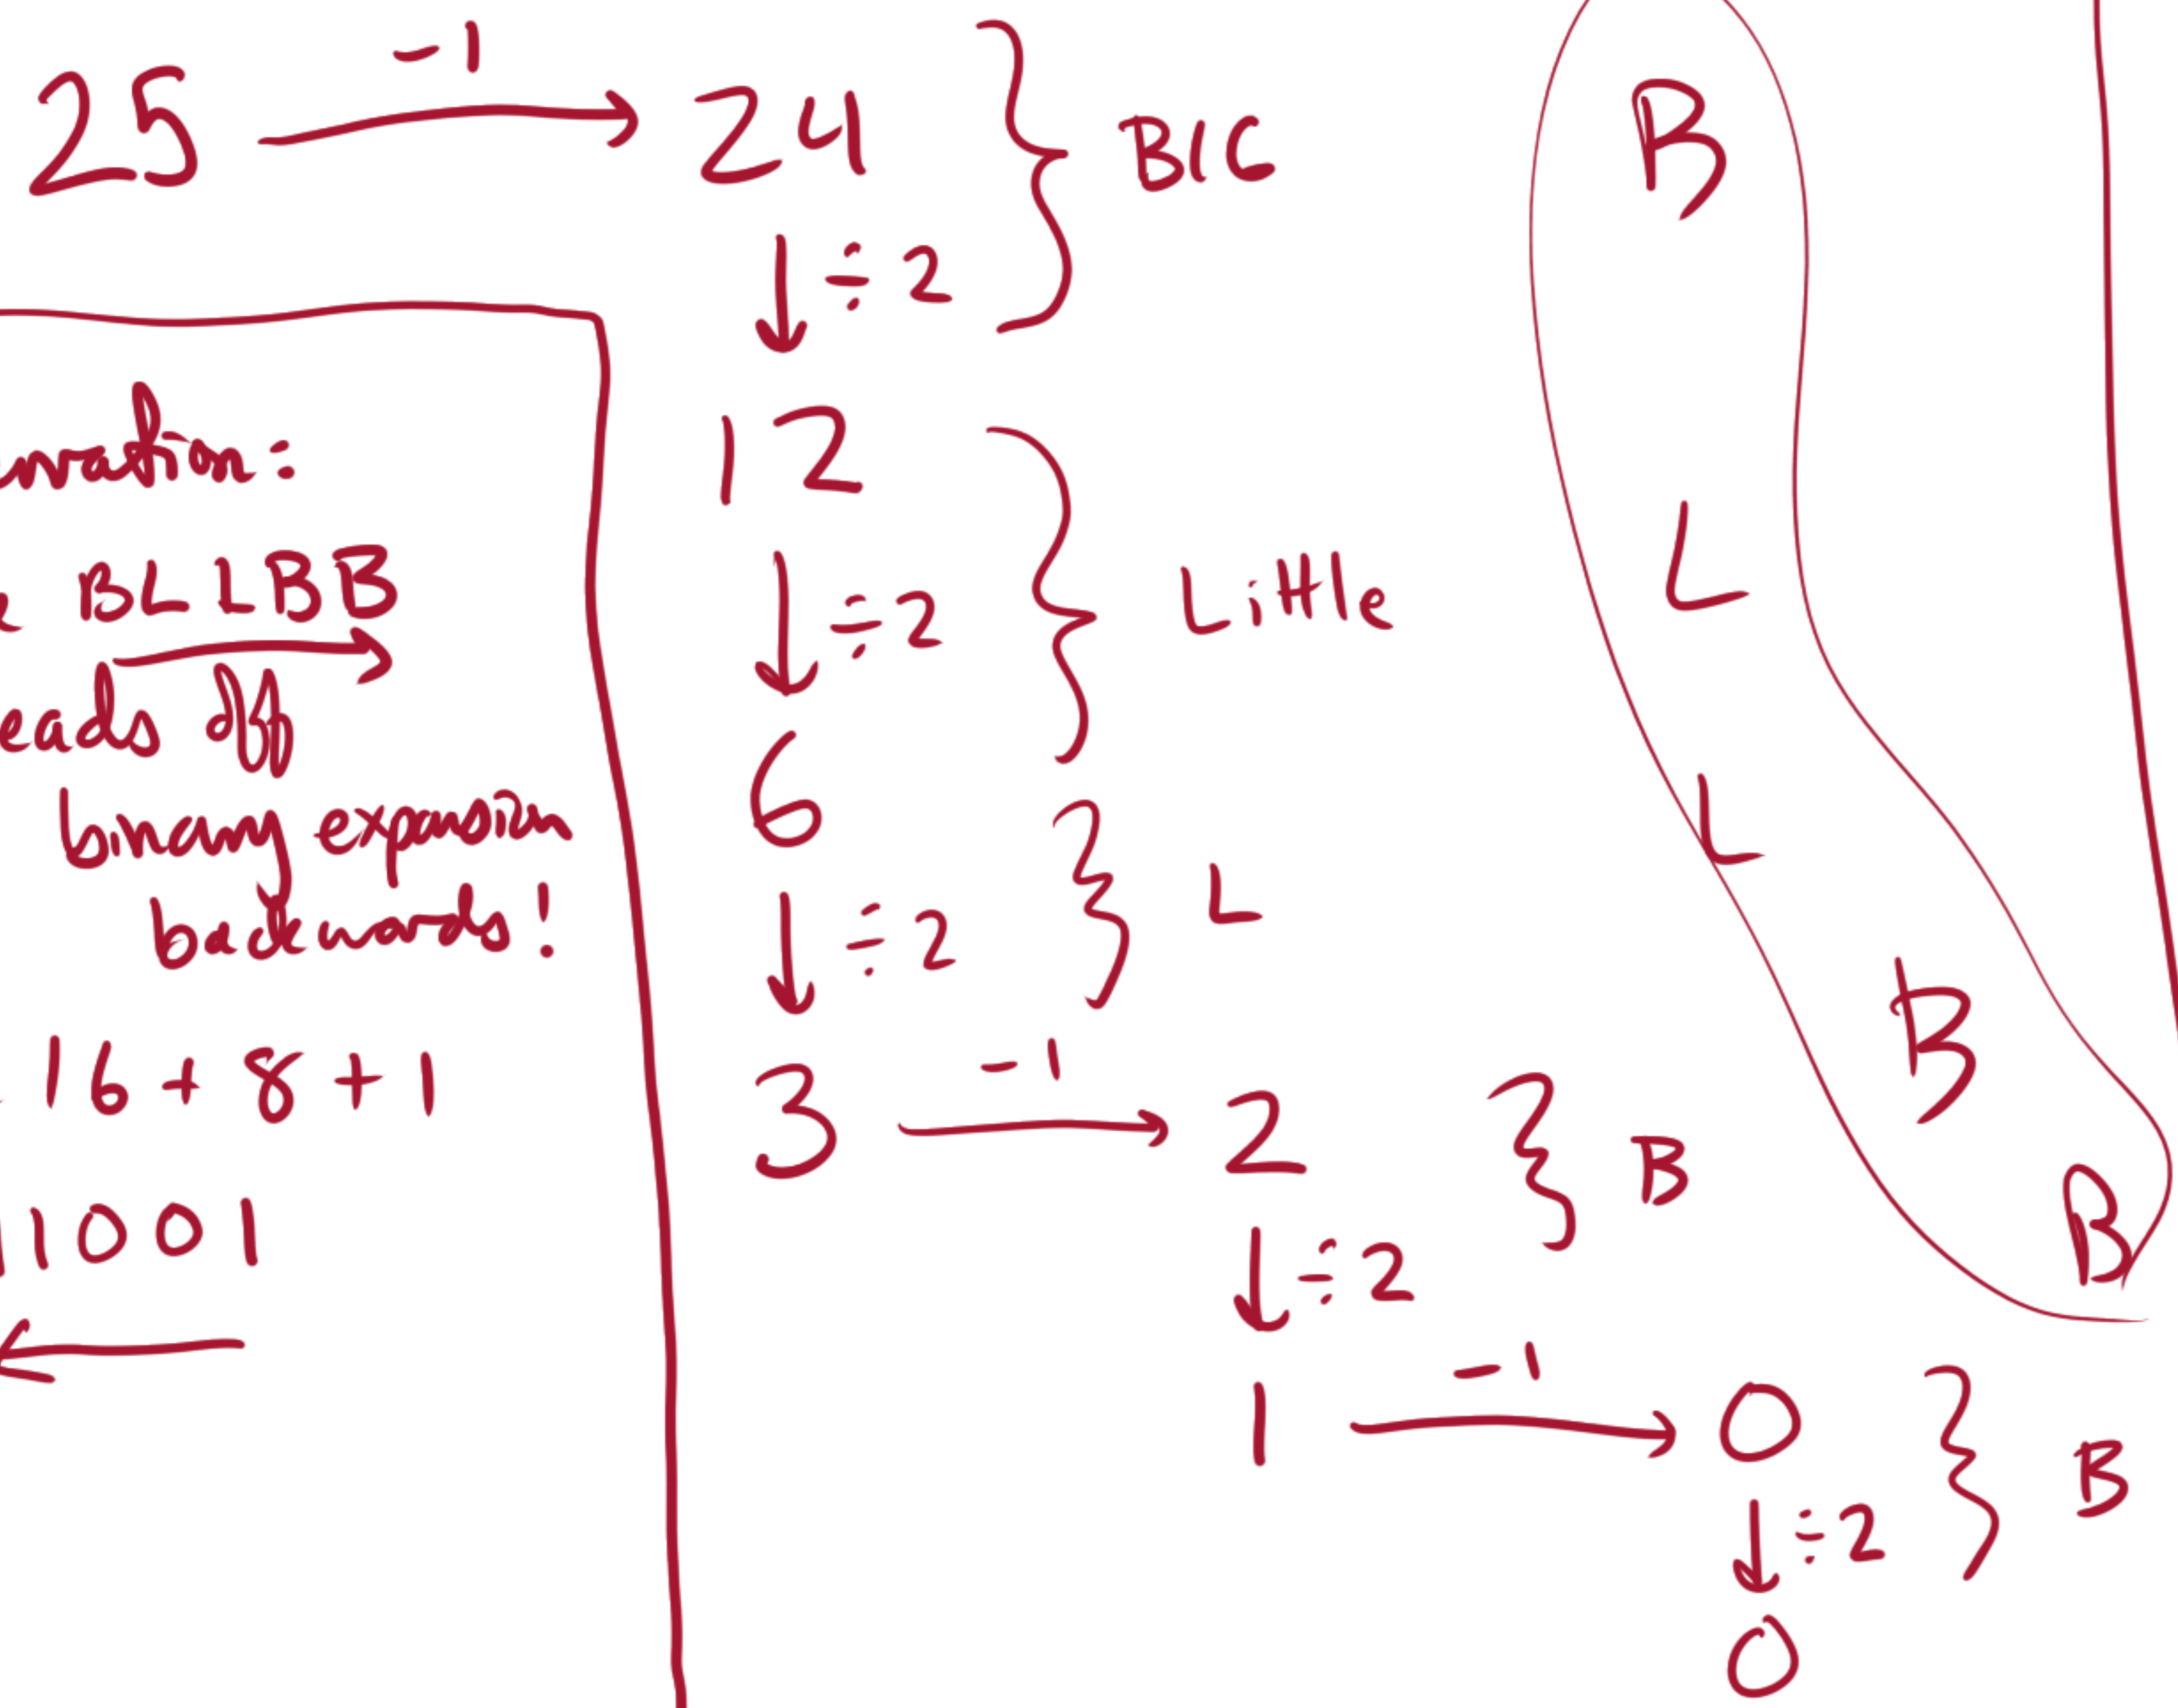 25 -1 24 BIG
÷ 2
12
÷ 2 Little
6
÷ 2 L
3 -1 2 B
÷ 2
1 -1 0 B
÷ 2
0
BLLBB
off
binary expansion
backwards!
16 + 8 + 1
11001
B
L
L
B
B